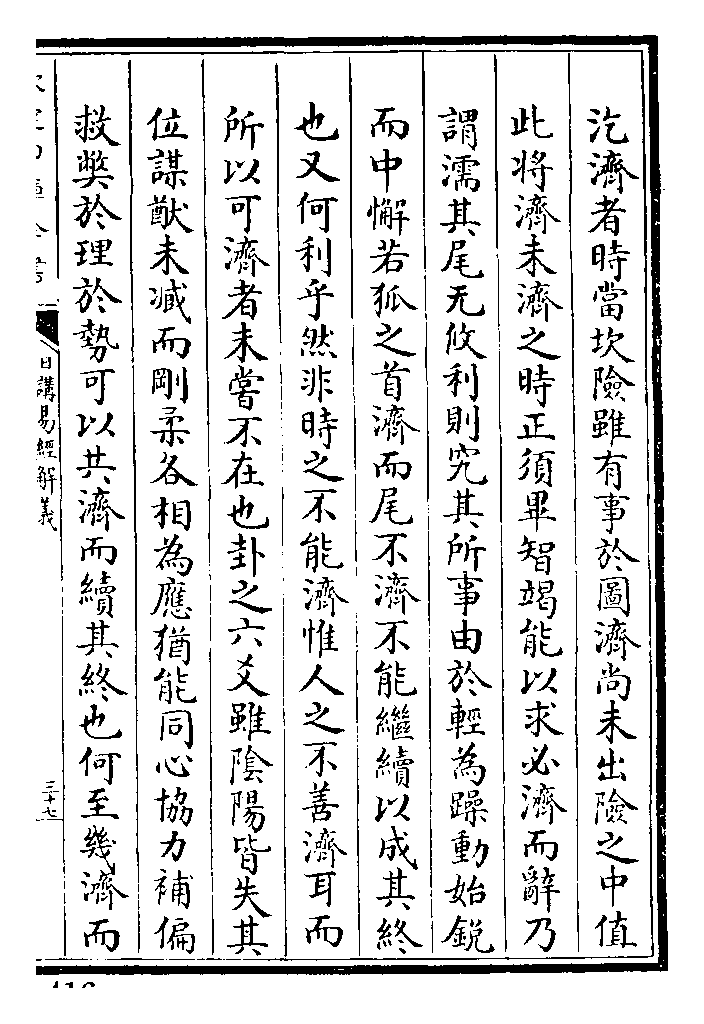 汔濟者時當坎險雖有事於圖濟尚未出險之中值
此將濟未濟之時正須畢智竭能以求必濟而辭乃
謂濡其尾无攸利則究其所事由於輕為躁動始銳
而中懈若狐之首濟而尾不濟不能繼續以成其終
也又何利乎然非時之不能濟惟人之不善濟耳而
所以可濟者未嘗不在也卦之六爻雖陰陽皆失其
位謀猷未減而剛柔各相為應猶能同心協力補偏
救獘於理於勢可以共濟而續其終也何至幾濟而
日講易經解義
三十七